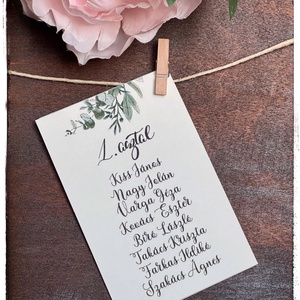 1. asztal
Kiss János
Nagy Jolán
Varga Géza
Kovács Eszter
Biró László
Takács Kriszta
Farkas Ildikó
Szakács Ágnes